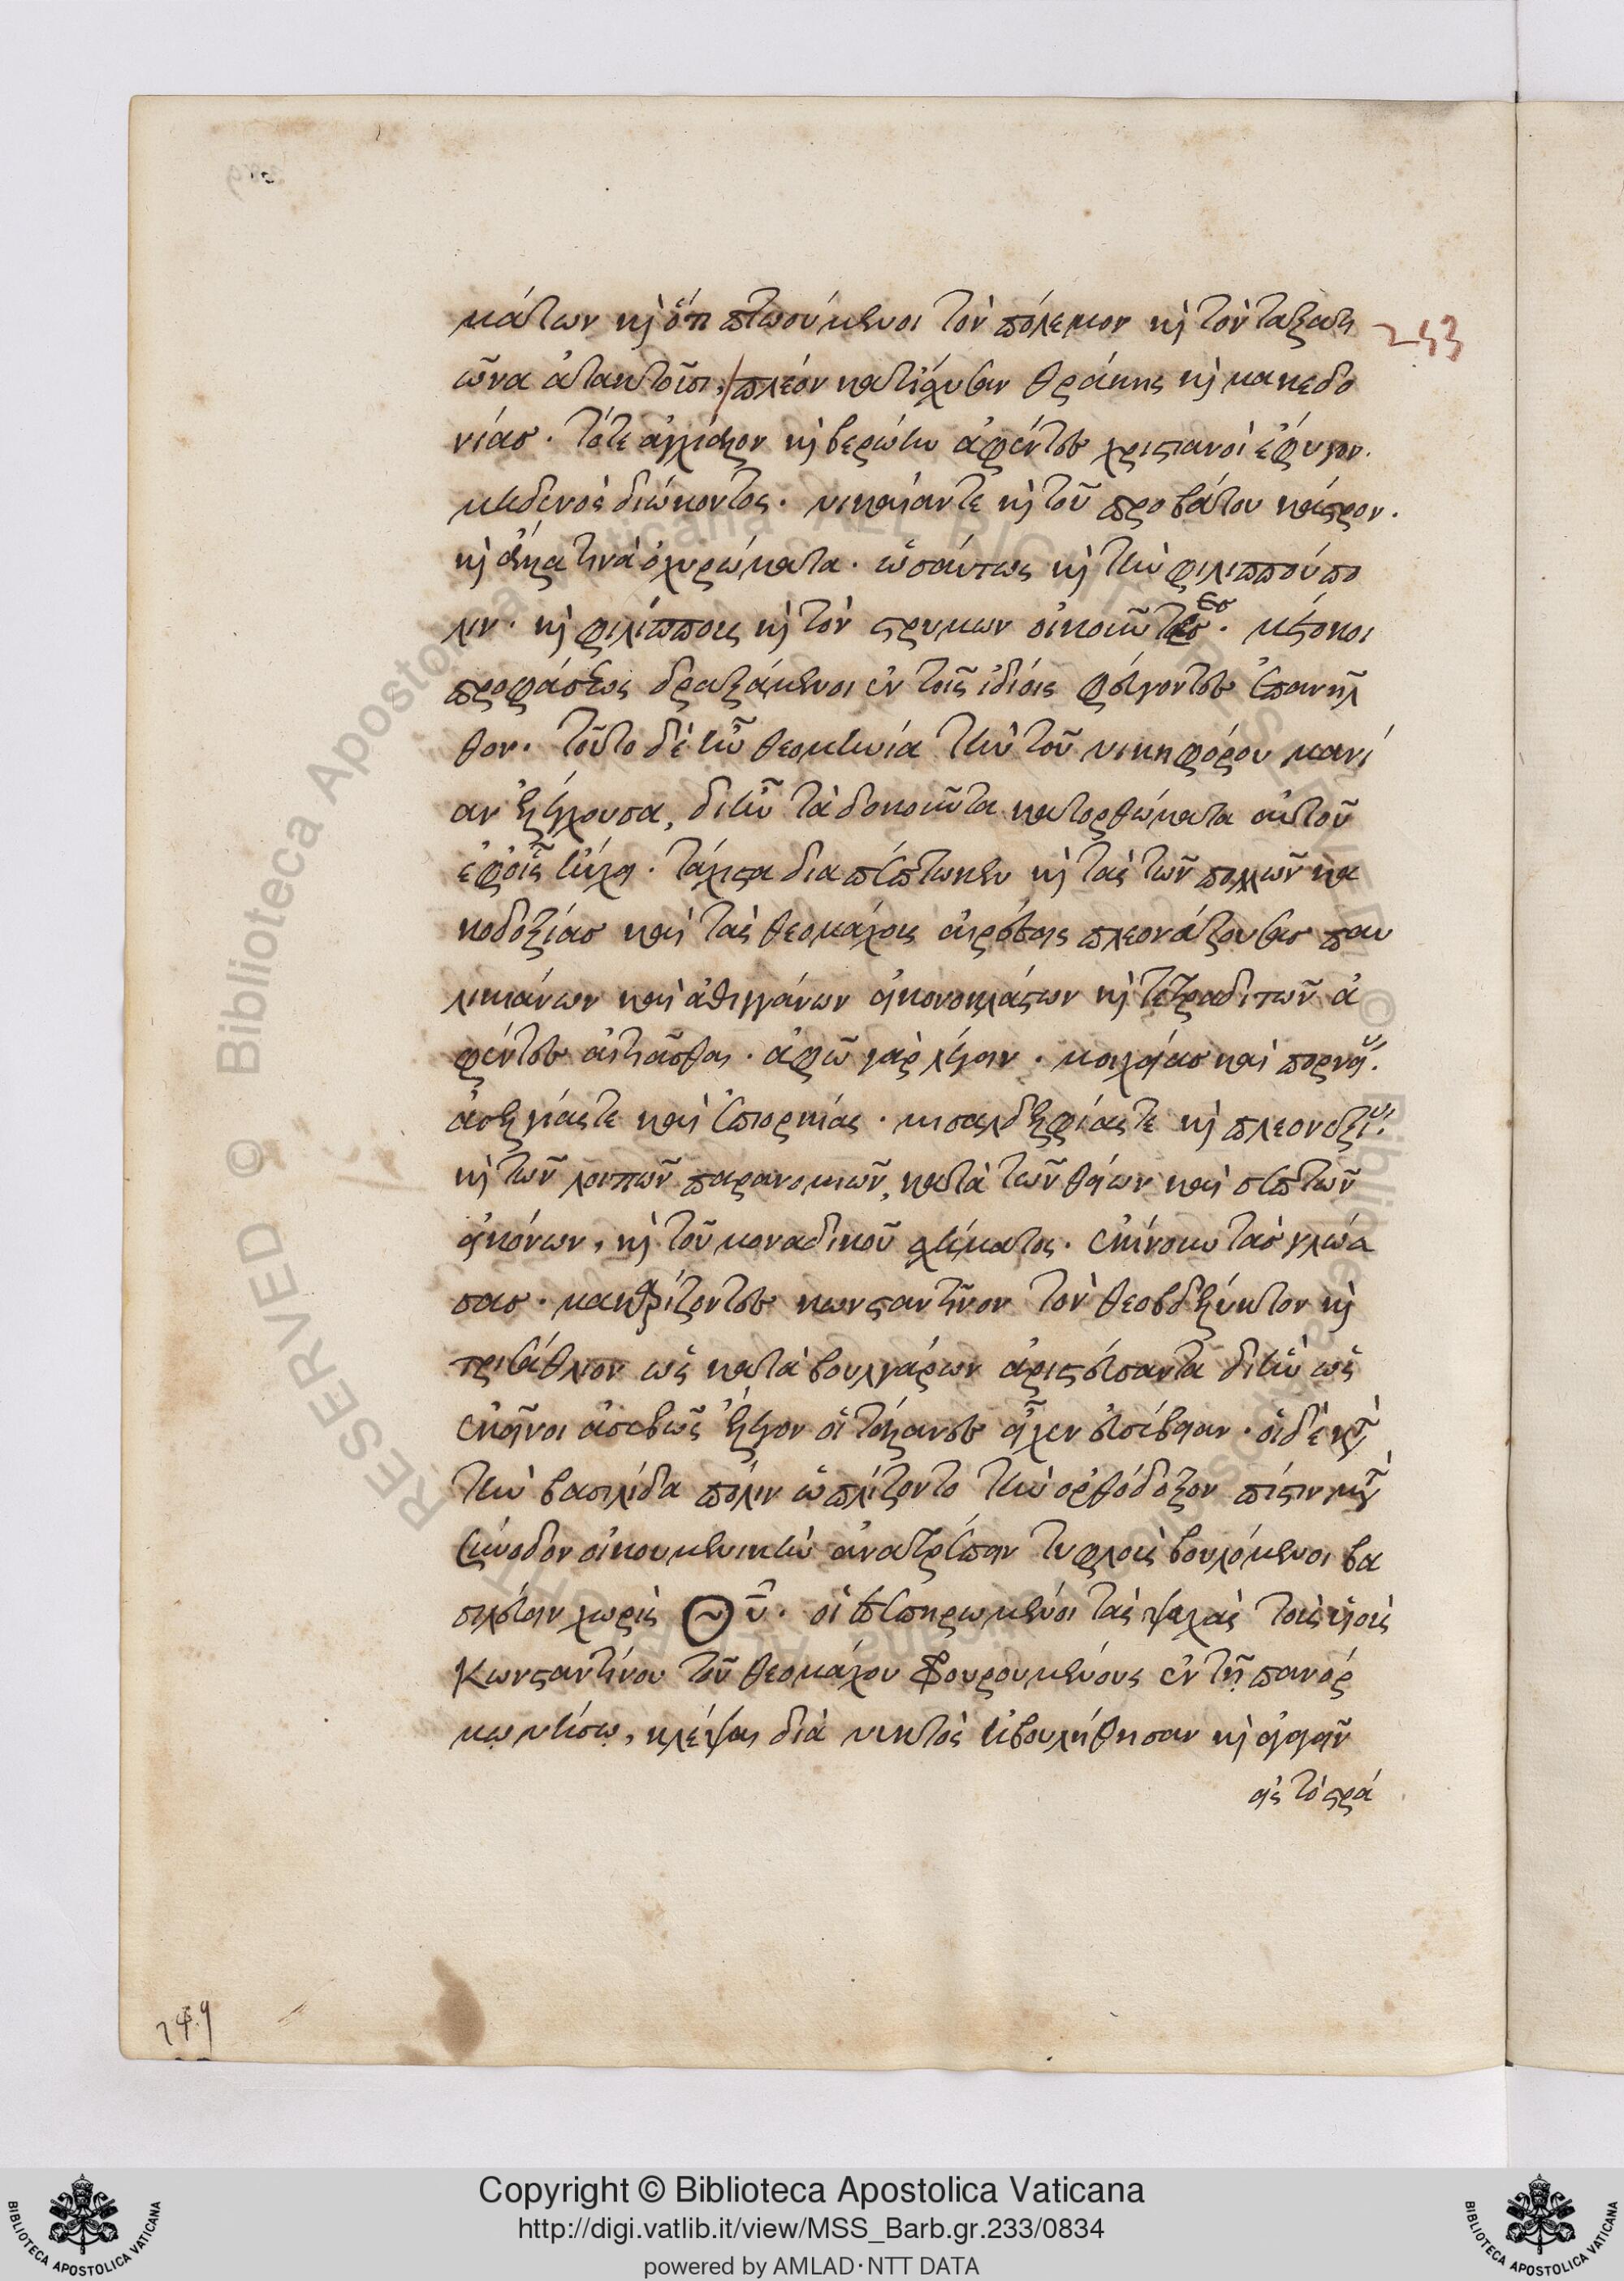 253
μάτων καὶ ὅτι πτωούμενοι τὸν πόλεμον καὶ τὸν ταξατι
ῶνα ἀτακτοῖσι, πλέον κατίσχυσαν θράκης καὶ μακεδο
νίας. τότε ἀγχίαλον καὶ βερόην ἀφέντες χριστιανοὶ ἔφυγον.
μηδενὸς διώκοντος. νικαίαν τὲ καὶ τοῦ προβάτου κάστρον.
καὶ ἄλλα τινὰ ὀχυρώματα. ὡσαύτως καὶ τὴν φιλιππούπο
λιν. καὶ φιλίππους καὶ τὸν στρυμων οἰκοῦντες. μέτοικοι
προφάσεως δραξάμενοι ἐν τοῖς ἰδίοις φεύγοντες ἐπανῆλ
θον. τοῦτο δὲ ἦν θεομηνία τὴν τοῦ νικηφόρου μανί
αν ἐλέγχουσα, δι ἣν τὰ δοκοῦντα κατορθώματα αὐτοῦ
ἐφ οἷς ηὔχει. τάχιστα διαπέπτωκεν καὶ τὰς τῶν πολλῶν κα
κοδοξίας καὶ τὰς θεομάχους αἱρέσεις πλεονάζουσας παυ
λικιάνων καὶ ἀθιγγάνων εἰκονοκλάστων καὶ τετραδιτῶν ἀ
φέντες αἰτιᾶσθαι. ἀφῶ γὰρ λέγειν. μοιχείας καὶ πορνεί.
ἀσελγίας τε καὶ ἐπιορκίας. μισαδελφίας τε καὶ πλεονεξι.
καὶ τῶν λοιπῶν παρανομιῶν, κατὰ τῶν θείων καὶ σεπτῶν
εἰκόνων, καὶ τοῦ μοναδικοῦ σχήματος. ἐκίνουν τὰς γλώσ
σας. μακαρίζοντες κωνσταντῖνον τὸν θεοβδέλυκτον καὶ
τρισάθλιον ὡς κατὰ βουλγάρων ἀριστεύσαντα δι ἣν ὡς
ἐκεῖνοι ἀσεβῶς ἔλεγον οἱ τάλανες εἶχεν εὐσέβειαν. οἱ δὲ κατὰ
τὴν βασιλίδα πόλιν ὡπλίζοντο τὴν ὀρθόδοξον πίστιν μετὰ
σύνοδον οἰκουμενικὴν ἀνατρέπειν τυφλοὺς βουλόμενοι βα
σιλεύειν χωρὶς Θυ. οἱ πεπηρωμένοι τὰς ψυχὰς τοὺς υἱοὺς
Κωνσταντίνου τοῦ θεομάχου φρουρουμένους ἐν τῇ πανόρ
μῳ νήσῳ, κλέψαι διὰ νυκτὸς ἠβουλήθησαν καὶ ἀγαγεῖν
εἰς τὸ στρά
249
Copyright © Biblioteca Apostolica Vaticana
http://digi.vatlib.it/view/MSS_Barb.gr.233/0834
powered by AMLAD·NTT DATA